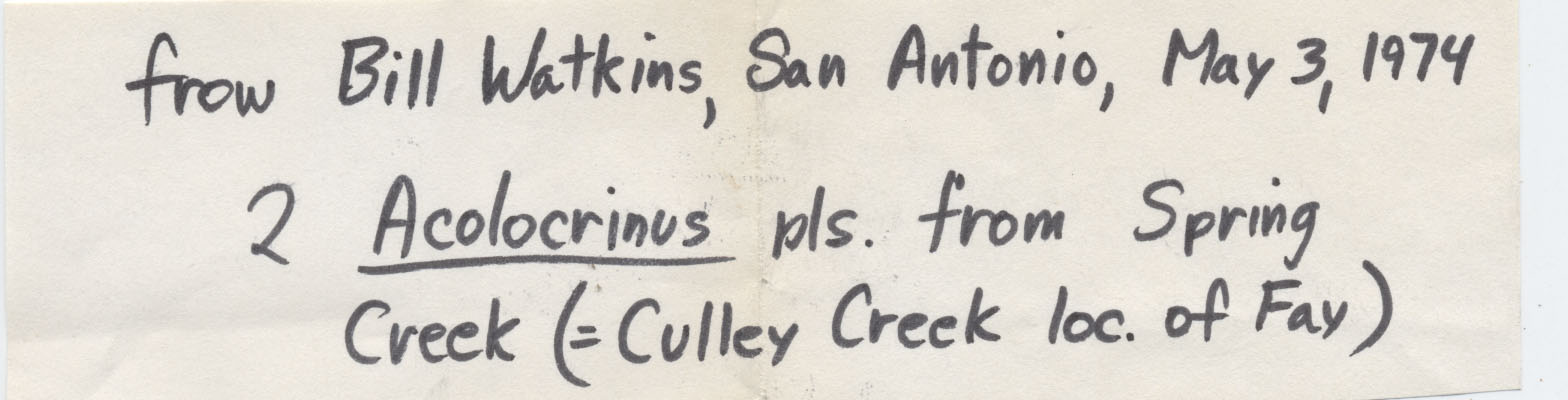 from Bill Watkins, San Antonio, May 3, 1974
2 Acolocrinus pls. from Spring
Creek (= Culley Creek loc. of Fay)